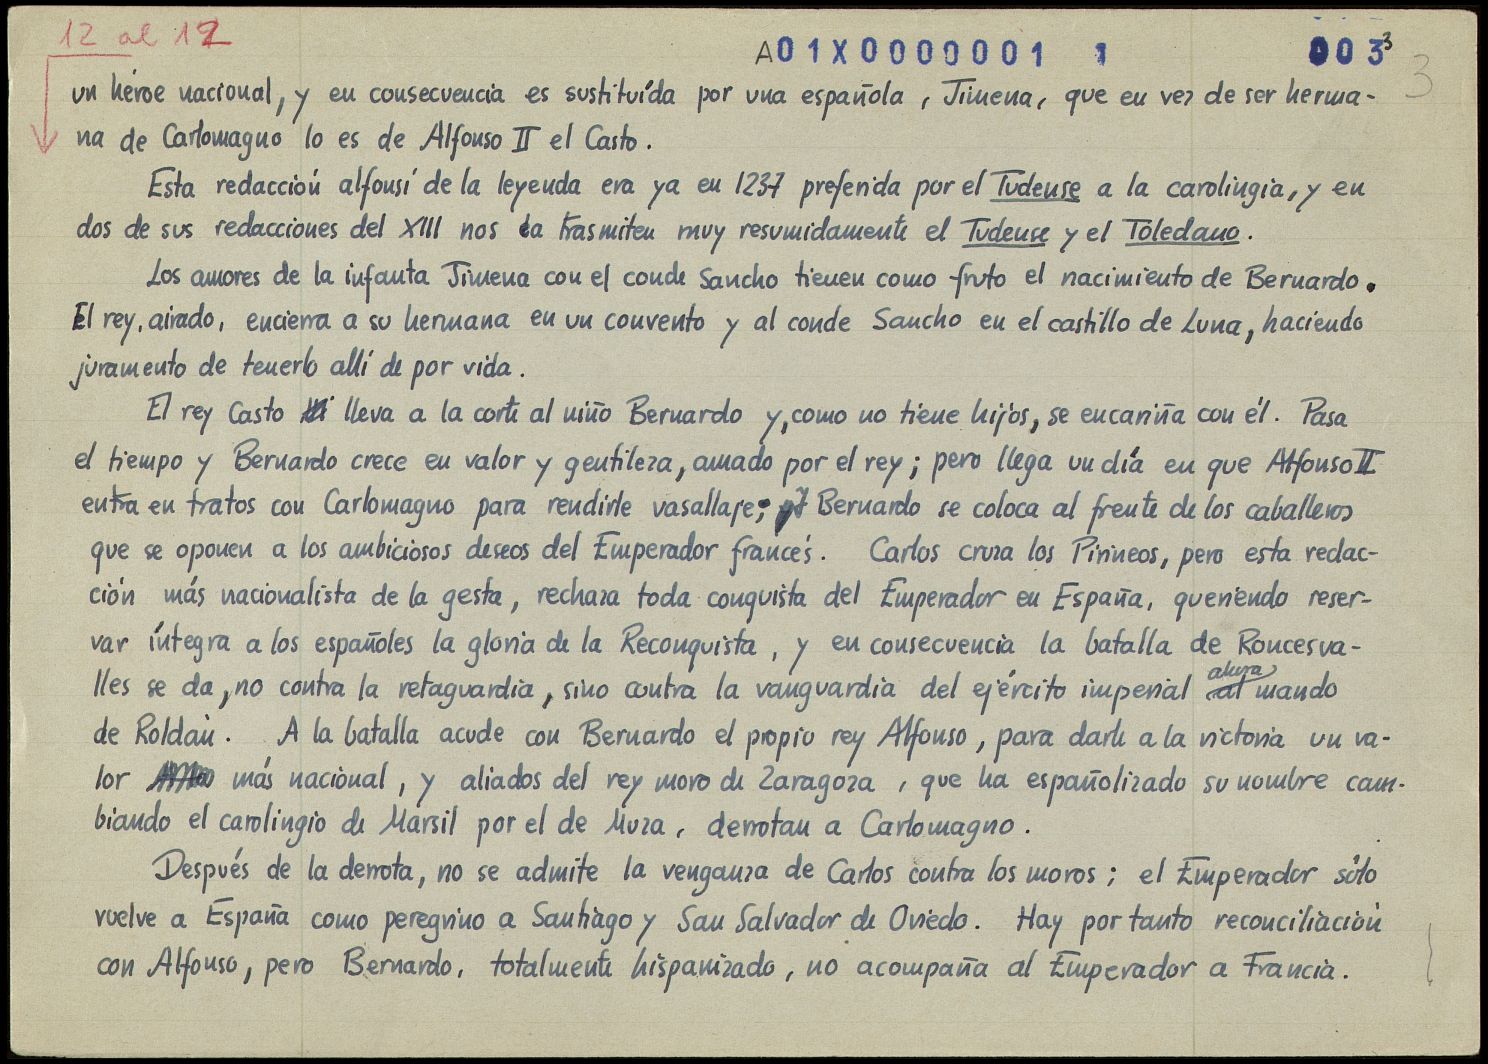 12 al 12
A01X0000001 1 003 3
3
un héroe nacional, y en consecuencia es sustituída por una española, Jimena, que en vez de ser herma-
na de Carlomagno lo es de Alfonso II el Casto.
Esta redacción alfonsí de la leyenda era ya en 1237 preferida por el Tudense a la carolingia, y en
dos de sus redacciones del XIII nos la trasmiten muy resumidamente el Tudense y el Toledano.
Los amores de la infanta Jimena con el conde Sancho tienen como fruto el nacimiento de Bernardo.
El rey, airado, encierra a su hermana en un convento y al conde Sancho en el castillo de Luna, haciendo
juramento de tenerlo allí de por vida.
El rey Casto lleva a la corte al niño Bernardo y, como no tiene hijos, se encariña con él. Pasa
el tiempo y Bernardo crece en valor y gentileza, amado por el rey; pero llega un día en que Alfonso II
entra en tratos con Carlomagno para rendirle vasallaje; Bernardo se coloca al frente de los caballeros
que se oponen a los ambiciosos deseos del Emperador francés. Carlos cruza los Pirineos, pero esta redac-
ción más nacionalista de la gesta, rechaza toda conquista del Emperador en España, queriendo reser-
var íntegra a los españoles la gloria de la Reconquista, y en consecuencia la batalla de Roncesva-
lles se da, no contra la retaguardia, sino contra la vanguardia del ejército imperial ahora al mando
de Roldán. A la batalla acude con Bernardo el propio rey Alfonso, para darle a la victoria un va-
lor más nacional, y aliados del rey moro de Zaragoza, que ha españolizado su nombre cam-
biando el carolingio de Marsil por el de Muza, derrotan a Carlomagno.
Después de la derrota, no se admite la venganza de Carlos contra los moros; el Emperador sólo
vuelve a España como peregrino a Santiago y San Salvador de Oviedo. Hay por tanto reconciliación
con Alfonso, pero Bernardo, totalmente hispanizado, no acompaña al Emperador a Francia.